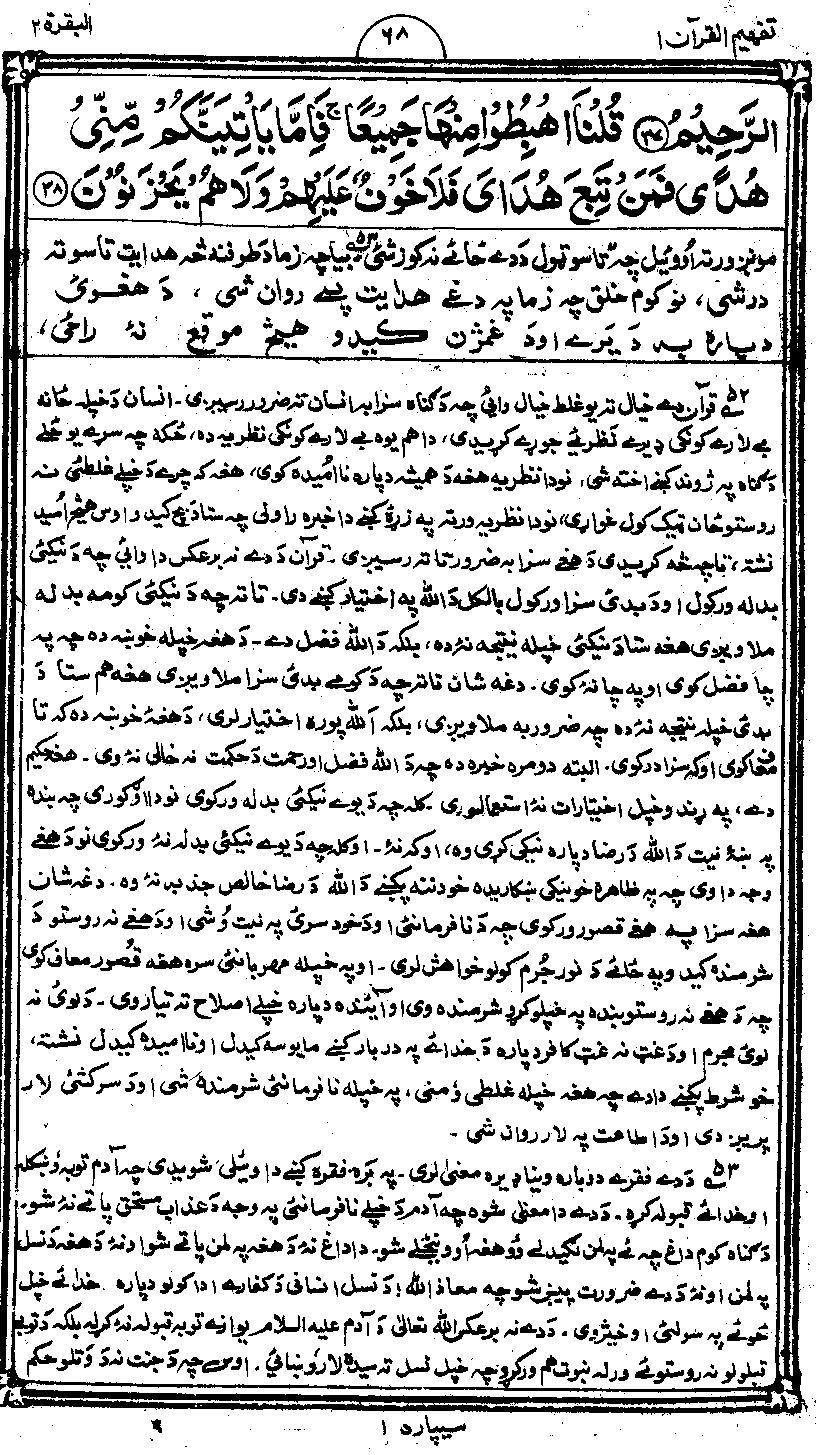 تفهيم القرآن ۱
۶۸
البقرة ۲
الرَّحِيْمُ ﴿۳۷﴾ قُلْنَا اهْبِطُوْا مِنْهَا جَمِيْعًا ۚ فَاِمَّا يَاْتِيَنَّكُمْ مِّنِّىْ
هُدًى فَمَنْ تَبِعَ هُدَاىَ فَلَا خَوْفٌ عَلَيْهِمْ وَلَا هُمْ يَحْزَنُوْنَ ﴿۳۸﴾
مونږ ورته اووئيل چه تاسو ټول د دے ځائے نه کوز شئ ۵۳ بيا چه زما د طرفنه څه هدايت تاسو ته
درشى، نو کوم خلق چه زما په دغے هدايت پسے روان شى ، د هغوى
دپاره به د يرے او د غمژن کيدو هيڅ موقع نه راځى،
۵۲ قرآن دے خيال ته يو غلط خيال وائى چه د ګناه سزا به انسان ته ضرور رسيږى ۔ انسان د خپله ځانه
بے لارے کونکى ډيرے نظريئے جوړے کړيدى، دا هم يوه بے لارے کونکى نظريه ده، ځکه چه سړے يو ځلے
د ګناه په ژوند کښے اخته شى، نو دا نظريه هغه د هميشه دپاره نااميده کوى، هغه که چرے د خپلے غلطئ نه
روستو ځان نيک کول غواړى، نو دا نظريه ورته په زړۀ کښے دا خبره راولى چه ستا د بچ کيدو اوس هيڅ اُميد
نشته، تا چه څه کړيدى د هغے سزا به ضرور تا ته رسيږى ۔ قرآن د دے نه برعکس دا وائى چه د نيکئ
بدله ورکول او د بدئ سزا ورکول بالکل د الله په اختيار کښے دى. تا ته چه د نيکئ کومه بدله
ملاويږى هغه ستا د نيکئ خپله نتيجه نۀ ده، بلکه د الله فضل دے ۔ د هغه خپله خوښه ده چه په
چا فضل کوى او په چا نۀ کوى ۔ دغه شان تا ته چه د کومے بدئ سزا ملاويږى هغه هم ستا د
بدئ خپله نتيجه نۀ ده چه ضرور به ملاويږى، بلکه الله پوره اختيار لرى، د هغۀ خوښه ده که تا
معاف کوى او که سزا درکوى. البته دومره خبره ده چه د الله فضل او رحمت د حکمت نه خالى نۀ وى ۔ هغه حکيم
دے، په ړندو خپل اختيارات نۀ استعمالوى ۔ کله چه د يوے نيکئ بدله ورکوى نو دا اوګورى چه بنده
په ښۀ نيت د الله د رضا دپاره نيکى کړى وه، او که نۀ ۔ او کله چه د يوے نيکئ بدله نۀ ورکوى نو د هغے
وجه دا وى چه په ظاهره خو نيکى ښکاريده خو دننه پکښے د الله د رضا خالص جذبه نۀ وه ۔ دغه شان
هغه سزا په هغے قصور ورکوى چه د نافرمانئ او د خود سرئ په نيت وُشى او د هغے نه روستو د
شرمنده کيدو په ځائے د نور جُرم کولو خواهش لرى ۔ او په خپله مهربانئ سره هغه قصور معاف کوى
چه د هغے نه روستو بنده په خپلو کړو شرمنده وى او آئنده دپاره خپلے اصلاح ته تيار وى ۔ د لوئى نه
لوئى مجرم او د غټ نه غټ کافر دپاره د خدائے په دربار کښے مايوسه کيدل او نااميده کيدل نشته،
خو شرط پکښے دا دے چه هغه خپله غلطى ومنى، په خپله نافرمانئ شرمنده شى او د سرکشئ لار
پريږدى او د اطاعت په لار روان شى ۔
۵۳ د دے فقرے دوباره وينا ډيره معنى لرى ۔ په بَره فقره کښے دا ويلى شويدى چه آدم توبه وښکله
او خدائے قبوله کړه ۔ د دے دا معنى شوه چه آدم د خپلے نافرمانئ په وجه د عذاب مستحق پاتے نۀ شو۔
د ګناه کوم داغ چه ئے په لمن لګيدلے وو هغه اووينځلے شو۔ دا داغ نۀ د هغه په لمن پاتے شو او نۀ د هغه د نسل
په لمن او نۀ د دے ضرورت پيښ شو چه معاذ الله! د نسل انسانى د کفارے ادا کولو دپاره خدائے خپل
ځوئے په سولئ اوخيژوى ۔ د دے نه برعکس الله تعالىٰ د آدم عليه السلام يوازے توبه قبوله نۀ کړله بلکه د توبے
قبلولو نه روستو ئے ورله نبوت هم ورکړو چه خپل نسل ته سيده لار وښائى ۔ اوس چه د جنت نه د وتلو حکم
سيپاره ۱